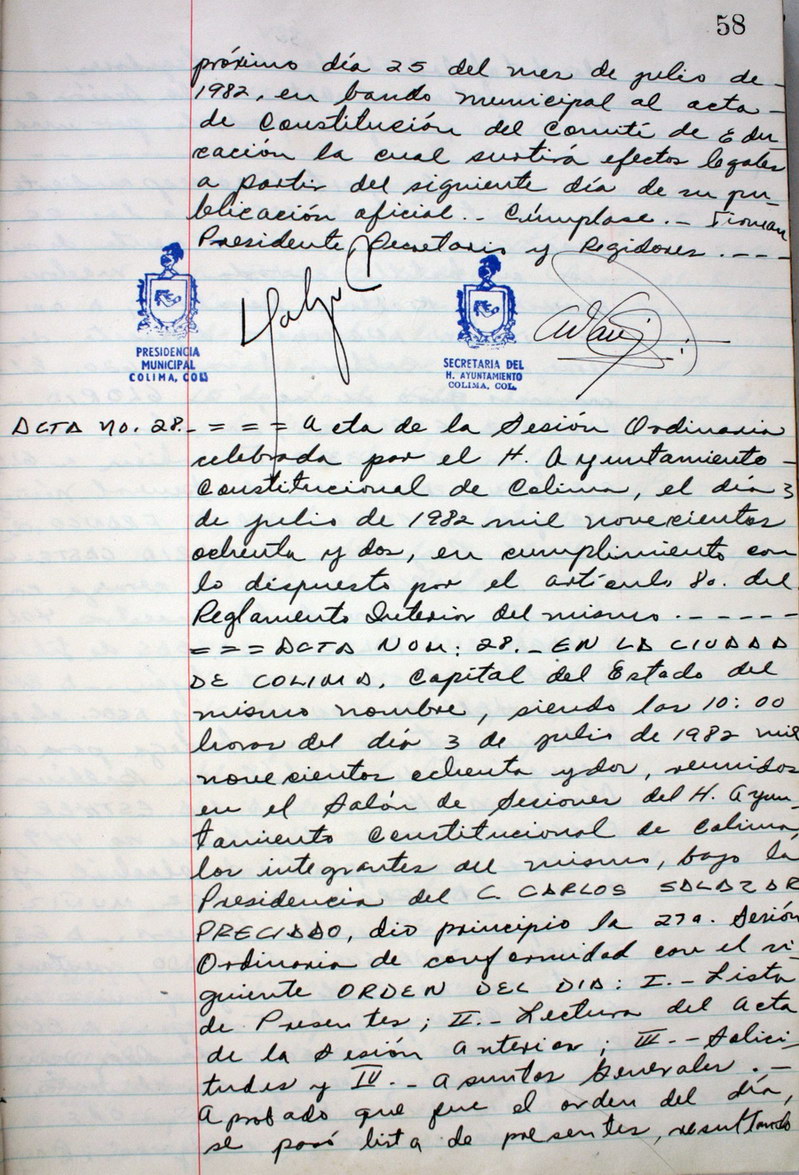 58
próximo día 25 del mes de julio de -
1982, en bando municipal al acta -
de Constitución del Comité de Edu
cación la cual surtirá efectos legales
a partir del siguiente día de su pu-
blicación oficial.- Cúmplase.- Firman
Presidente, Secretario y Regidores.---
PRESIDENCIA
MUNICIPAL
COLIMA, COL
SECRETARIA DEL
H. AYUNTAMIENTO
COLIMA, COL.
ACTA No. 28.- = = = Acta de la Sesión Ordinaria
celebrada por el H. Ayuntamiento -
Constitucional de Colima, el día 3
de julio de 1982 mil novecientos
ochenta y dos, en cumplimiento con
lo dispuesto por el artículo 8o. del
Reglamento Interior del mismo.-----
= = = ACTA NUM: 28.- EN LA CIUDAD
DE COLIMA, Capital del Estado del
mismo nombre, siendo las 10:00
horas del día 3 de julio de 1982 mil
novecientos ochenta y dos, reunidos
en el Salón de Sesiones del H. Ayun-
tamiento Constitucional de Colima,
los integrantes del mismo, bajo la
Presidencia del C. CARLOS SALAZAR
PRECIADO, dio principio la 27a. Sesión
Ordinaria de conformidad con el si-
guiente ORDEN DEL DIA: I.- Lista
de Presentes; II.- Lectura del Acta
de la Sesión Anterior; III.- Solici-
tudes y IV.- Asuntos Generales.-
Aprobado que fue el orden del día,
se pasó lista de presentes, resultando